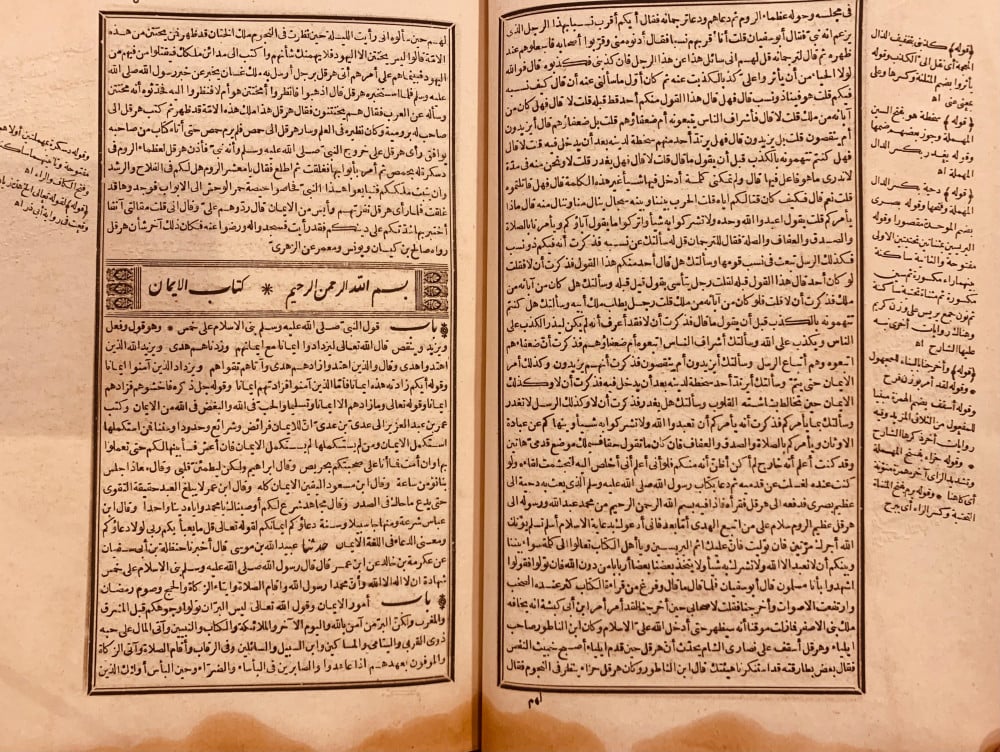 فى مجلسه وحوله عظماء الروم ثم دعاهم ودعا ترجمانه فقال أيكم أقرب نسبا بهذا الرجل الذى
يزعم أنه نبى فقال أبو سفيان قلت أنا أقربهم نسبا فقال أدنوه منى وقربوا أصحابه فاجعلوهم عند
ظهره ثم قال لترجمانه قل لهم انى سائل هذا عن هذا الرجل فان كذبنى فكذبوه قال فوالله
لولا الحياء من أن يأثروا على كذبا لكذبت عنه ثم كان أول ما سألنى عنه أن قال كيف نسبه
فيكم قلت هو فينا ذو نسب قال فهل قال هذا القول منكم أحد قط قبله قلت لا قال فهل كان من
آبائه من ملك قلت لا قال فأشراف الناس يتبعونه أم ضعفاؤهم قلت بل ضعفاؤهم قال أيزيدون
أم ينقصون قلت بل يزيدون قال فهل يرتد أحد منهم سخطة لدينه بعد أن يدخل فيه قلت لا قال
فهل كنتم تتهمونه بالكذب قبل أن يقول ما قال قلت لا قال فهل يغدر قلت لا ونحن منه فى مدة
لا ندرى ما هو فاعل فيها قال ولم تمكنى كلمة أدخل فيها شيأ غير هذه الكلمة قال فهل قاتلتموه
قلت نعم قال فكيف كان قتالكم اياه قلت الحرب بيننا وبينه سجال ينال منا وننال منه قال ماذا
يأمركم قلت يقول اعبدوا الله وحده ولا تشركوا به شيأ واتركوا ما يقول آباؤكم ويأمرنا بالصلاة
والصدق والعفاف والصلة فقال للترجمان قل له سألتك عن نسبه فذكرت أنه فيكم ذو نسب
فكذلك الرسل تبعث فى نسب قومها وسألتك هل قال أحد منكم هذا القول فذكرت أن لا فقلت
لو كان أحد قال هذا القول قبله لقلت رجل يأتسى بقول قيل قبله وسألتك هل كان من آبائه من
ملك فذكرت أن لا قلت فلو كان من آبائه من ملك قلت رجل يطلب ملك أبيه وسألتك هل كنتم
تتهمونه بالكذب قبل أن يقول ما قال فذكرت أن لا فقد أعرف أنه لم يكن ليذر الكذب على
الناس ويكذب على الله وسألتك أشراف الناس اتبعوه أم ضعفاؤهم فذكرت أن ضعفاءهم
اتبعوه وهم أتباع الرسل وسألتك أيزيدون أم ينقصون فذكرت أنهم يزيدون وكذلك أمر
الايمان حتى يتم وسألتك أيرتد أحد سخطة لدينه بعد أن يدخل فيه فذكرت أن لا وكذلك
الايمان حين تخالط بشاشته القلوب وسألتك هل يغدر فذكرت أن لا وكذلك الرسل لا تغدر
وسألتك بما يأمركم فذكرت أنه يأمركم أن تعبدوا الله ولا تشركوا به شيأ وينهاكم عن عبادة
الاوثان ويأمركم بالصلاة والصدق والعفاف فان كان ما تقول حقا فسيملك موضع قدمى هاتين
وقد كنت أعلم أنه خارج لم أكن أظن أنه منكم فلو أنى أعلم أنى أخلص اليه لتجشمت لقاءه ولو
كنت عنده لغسلت عن قدمه ثم دعا بكتاب رسول الله صلى الله عليه وسلم الذى بعث به دحية الى
عظيم بصرى فدفعه الى هرقل فقرأه فاذا فيه بسم الله الرحمن الرحيم من محمد عبد الله ورسوله الى
هرقل عظيم الروم سلام على من اتبع الهدى أما بعد فانى أدعوك بدعاية الاسلام أسلم تسلم يؤتك
الله أجرك مرتين فان توليت فان عليك اثم اليريسين ويا أهل الكتاب تعالوا الى كلمة سواء بيننا
وبينكم أن لا نعبد الا الله ولا نشرك به شيأ ولا يتخذ بعضنا بعضا أربابا من دون الله فان تولوا فقولوا
اشهدوا بأنا مسلمون قال أبو سفيان فلما قال ما قال وفرغ من قراءة الكتاب كثر عنده الصخب
وارتفعت الاصوات وأخرجنا فقلت لاصحابى حين أخرجنا لقد أمر أمر ابن أبى كبشة انه يخافه
ملك بنى الاصفر فما زلت موقنا أنه سيظهر حتى أدخل الله على الاسلام وكان ابن الناطور صاحب
ايلياء وهرقل أسقف على نصارى الشام يحدث أن هرقل حين قدم ايلياء أصبح خبيث النفس
فقال بعض بطارقته قد استنكرنا هيئتك قال ابن الناطور وكان هرقل حزاء ينظر فى النجوم فقال
لهم
﴿قوله﴾ كذبنى بتخفيف الذال
المعجمة أى نقل الى الكذب وقوله
يأثروا بضم المثلثة وكسرها وعلى
بمعنى عنى اه
﴿قوله﴾ سخطة هو بفتح السين
المهملة وجوز بعضهم ضمها
وقوله يغدر بكسر الدال
المهملة اه
﴿قوله﴾ دحية بكسر الدال
المهملة وفتحها وقوله بصرى
بضم الموحدة مقصورا وقوله
اليريسين بمثناتين تحتيتين الاولى
مفتوحة والثانية ساكنة
بينهما راء مكسورة ثم سين
مكسورة ثم مثناة تحتية ساكنة
ثم نون جمع يريس على وزن كريم
وهناك روايات أخرى نبه
عليها الشارح اه
﴿قوله﴾ وأخرجنا بالبناء للمجهول
* وقوله لقد أمر بوزن فرح
وقوله أسقف بضم الهمزة مبنيا
للمفعول من الثلاثى المزيد وفيه
روايات أخر ذكرها الشارح
* وقوله حزاء بفتح المهملة
وتشديد الزاى آخره همزة منونة
أى كاهنا * وقوله يرم بفتح المثناة
التحتية وكسر الراء أى يبرح
لهم حين سألوه انى رأيت الليلة حين نظرت فى النجوم ملك الختان قد ظهر فمن يختتن من هذه
الامة قالوا ليس يختتن الا اليهود فلا يهمنك شأنهم واكتب الى مدائن ملكك فيقتلوا من فيهم من
اليهود فبينما هم على أمرهم أتى هرقل برجل أرسل به ملك غسان يخبر عن خبر رسول الله صلى الله
عليه وسلم فلما استخبره هرقل قال اذهبوا فانظروا أمختتن هو أم لا فنظروا اليه فحدثوه أنه مختتن
وسأله عن العرب فقال هم يختتنون فقال هرقل هذا ملك هذه الامة قد ظهر ثم كتب هرقل الى
صاحب له برومية وكان نظيره فى العلم وسار هرقل الى حمص فلم يرم حمص حتى أتاه كتاب من صاحبه
يوافق رأى هرقل على خروج النبى صلى الله عليه وسلم وأنه نبى فأذن هرقل لعظماء الروم فى
دسكرة له بحمص ثم أمر بأبوابها فغلقت ثم اطلع فقال يا معشر الروم هل لكم فى الفلاح والرشد
وأن يثبت ملككم فتبايعوا هذا النبى فحاصوا حيصة حمر الوحش الى الابواب فوجدوها قد
غلقت فلما رأى هرقل نفرتهم وأيس من الايمان قال ردوهم على وقال انى قلت مقالتى آنفا
أختبر بها شدتكم على دينكم فقد رأيت فسجدوا له ورضوا عنه فكان ذلك آخر شأن هرقل
رواه صالح بن كيسان ويونس ومعمر عن الزهرى
بسم الله الرحمن الرحيم * كتاب الايمان
باب قول النبى صلى الله عليه وسلم بنى الاسلام على خمس * وهو قول وفعل
ويزيد وينقص قال الله تعالى ليزدادوا ايمانا مع ايمانهم وزدناهم هدى ويزيد الله الذين
اهتدوا هدى وقال والذين اهتدوا زادهم هدى وآتاهم تقواهم ويزداد الذين آمنوا ايمانا
وقوله أيكم زادته هذه ايمانا فأما الذين آمنوا فزادتهم ايمانا وقوله جل ذكره فاخشوهم فزادهم
ايمانا وقوله تعالى وما زادهم الا ايمانا وتسليما والحب فى الله والبغض فى الله من الايمان وكتب
عمر بن عبد العزيز الى عدى بن عدى ان للايمان فرائض وشرائع وحدودا وسننا فمن استكملها
استكمل الايمان ومن لم يستكملها لم يستكمل الايمان فان أعش فسأبينها لكم حتى تعملوا
بها وان أمت فما أنا على صحبتكم بحريص وقال ابراهيم ولكن ليطمئن قلبى وقال معاذ اجلس
بنا نؤمن ساعة وقال ابن مسعود اليقين الايمان كله وقال ابن عمر لا يبلغ العبد حقيقة التقوى
حتى يدع ما حاك فى الصدر وقال مجاهد شرع لكم أوصيناك يا محمد واياه دينا واحدا وقال ابن
عباس شرعة ومنهاجا سبيلا وسنة دعاؤكم ايمانكم لقوله تعالى قل ما يعبأ بكم ربى لولا دعاؤكم
ومعنى الدعاء فى اللغة الايمان حدثنا عبيد الله بن موسى قال أخبرنا حنظلة بن أبى سفيان
عن عكرمة بن خالد عن ابن عمر قال قال رسول الله صلى الله عليه وسلم بنى الاسلام على خمس
شهادة ان لا اله الا الله وأن محمدا رسول الله واقام الصلاة وايتاء الزكاة والحج وصوم رمضان
باب أمور الايمان وقول الله تعالى ليس البر أن تولوا وجوهكم قبل المشرق
والمغرب ولكن البر من آمن بالله واليوم الآخر والملائكة والكتاب والنبيين وآتى المال على حبه
ذوى القربى واليتامى والمساكين وابن السبيل والسائلين وفى الرقاب وأقام الصلاة وآتى الزكاة
والموفون بعهدهم اذا عاهدوا والصابرين فى البأساء والضراء وحين البأس أولئك الذين
وقوله دسكرة بمهملتين أولاهما
مفتوحة وثانيتهما ساكنة
وفتح الكاف والراء اه
﴿قوله﴾ لقوله تعالى الخ
وقعت فى رواية أبى ذر اه